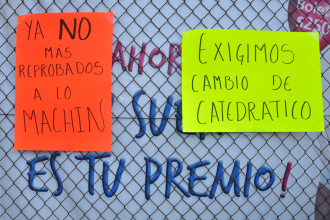 YA NO
MAS
REPROBADOS
A LO
MACHIN
EXIGIMOS
CAMBIO DE
CATEDRATICO
AHOR
TU SU
ES TU PREMIO!